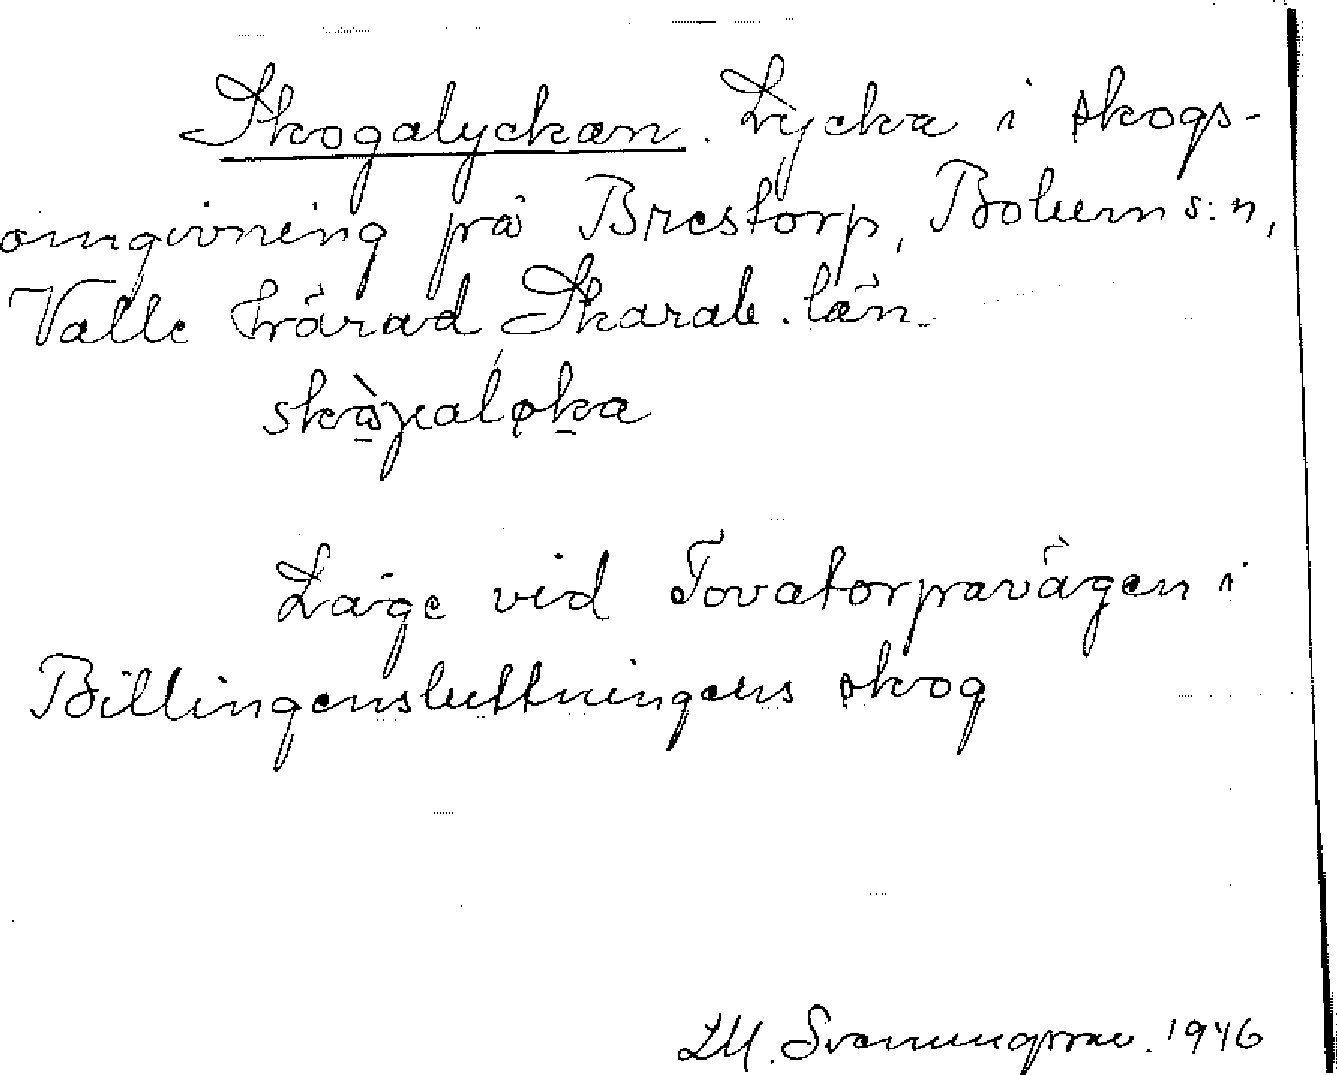 Skogalyckan. Lycka i skogs-
omgivning på Brestorp, Bolums:n,
Valle härad Skarab. län.
Läge vid Tovatorpavägen i
Billingensluttningens skog
1946